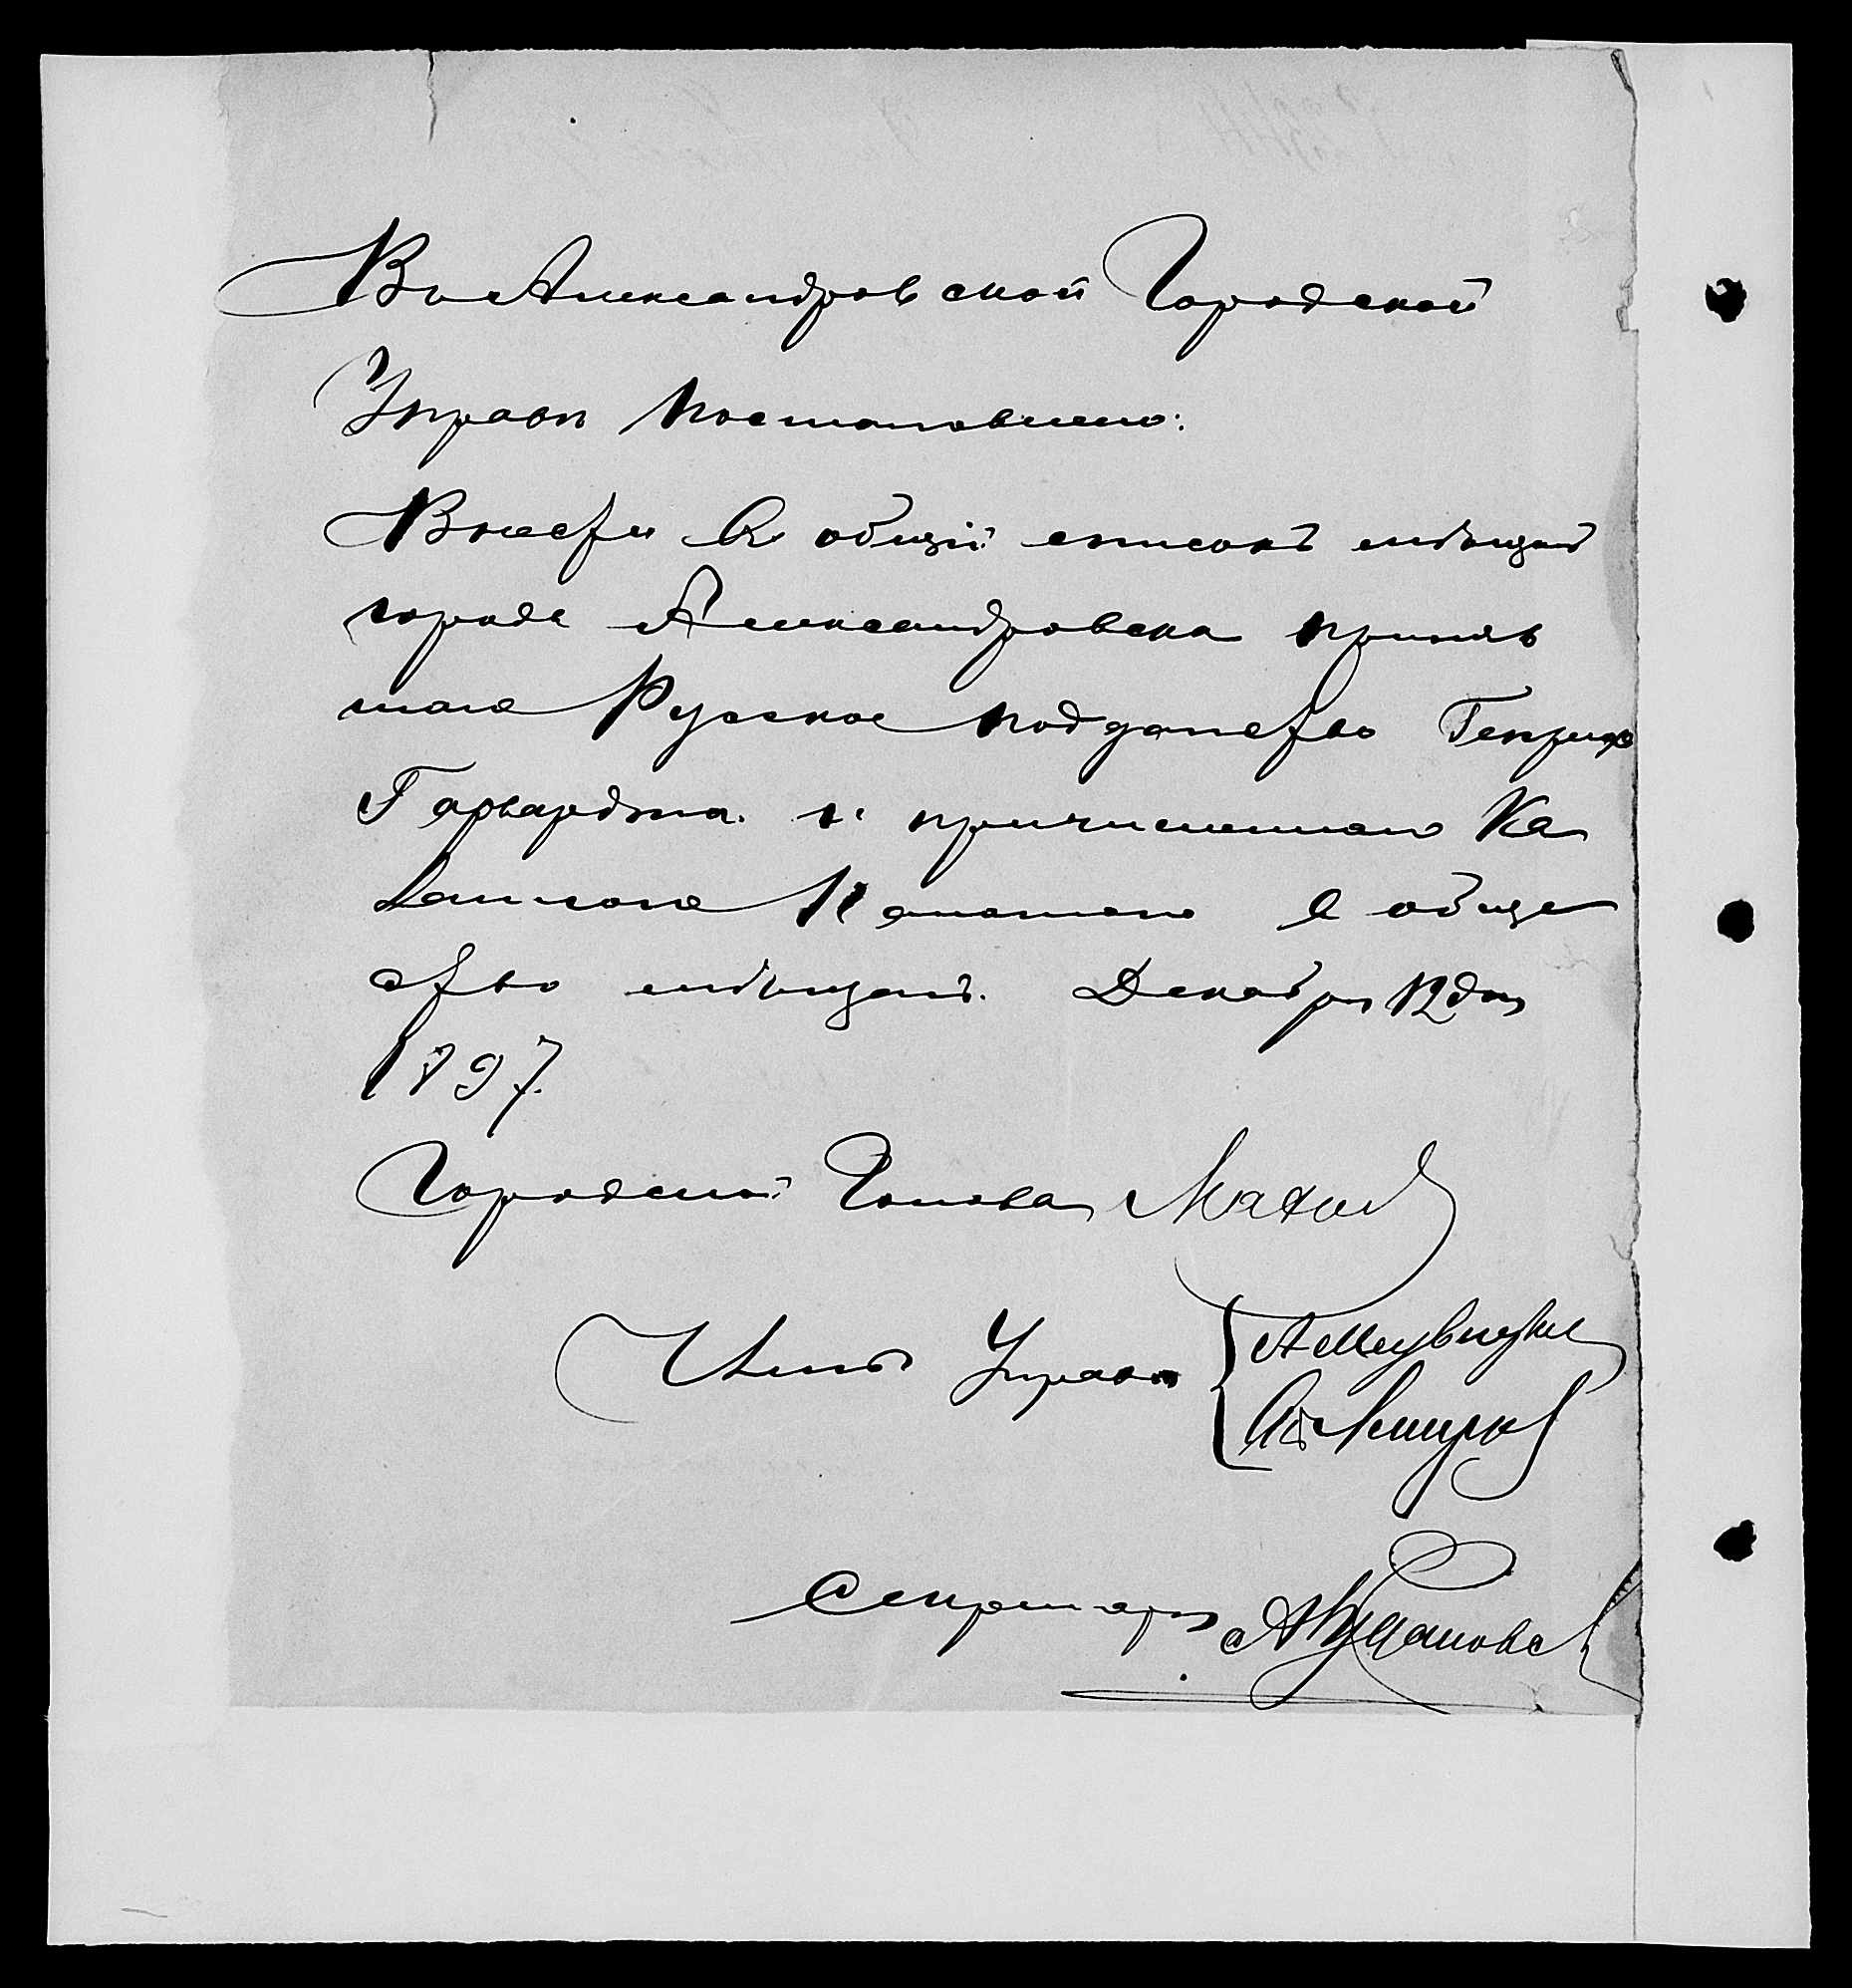 Въ Александровской Городской
Управѣ Постановлено:
Внести въ общій списокъ мѣщанъ
города Александровска приняв
шаго Русское подданство Генриха
Гергардта и причисленнаго Ка
Палатою в обще
ство мѣщанъ. Декабря 12 дня
1897.
Городской Голова
Члены Управы
Секретарь